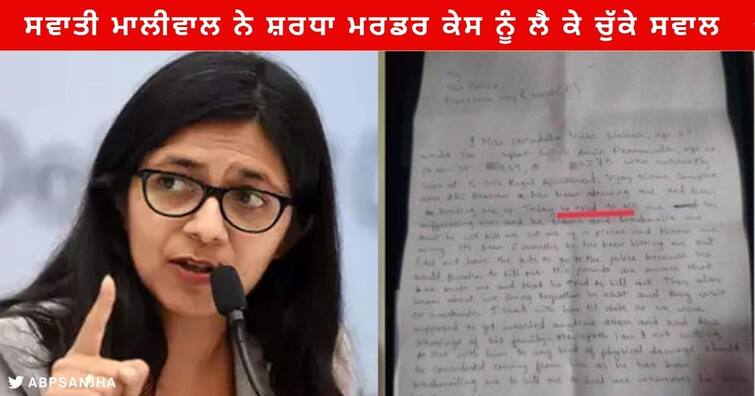 ਸਵਾਤੀ ਮਾਲੀਵਾਲ ਨੇ ਸ਼ਰਧਾ ਮਰਡਰ ਕੇਸ ਨੂੰ ਲੈ ਕੇ ਚੁੱਕੇ ਸਵਾਲ
To
The Police
I Miss Shraddha Vikas Walkar, age 25,
would like report Amin Poonawala, age
who currently
Regal Apartment, Vijay Vihar Complex
has been abusing me and been
me up. Today he tried to kill me by
suffocating me and he scares and blackmails me
that he will kill me cut me up in pieces and throw me
away. Its been 6 months he has been hitting me but
I did not have the guts to go to the police because he
would threaten to kill me. His parents are aware that
he beats me and that he tried to kill me. They also
know about we living together in and they visit
on weekends. I lived with him till date as we were
supposed to get married anytime soon and had the
blessings of his family. Henceforth I am not willing
to live with him so any kind of physical damage should
be considered coming from him as he has been
blackmailing me to kill me or hurt me whenever he sees
ABPSANJHA